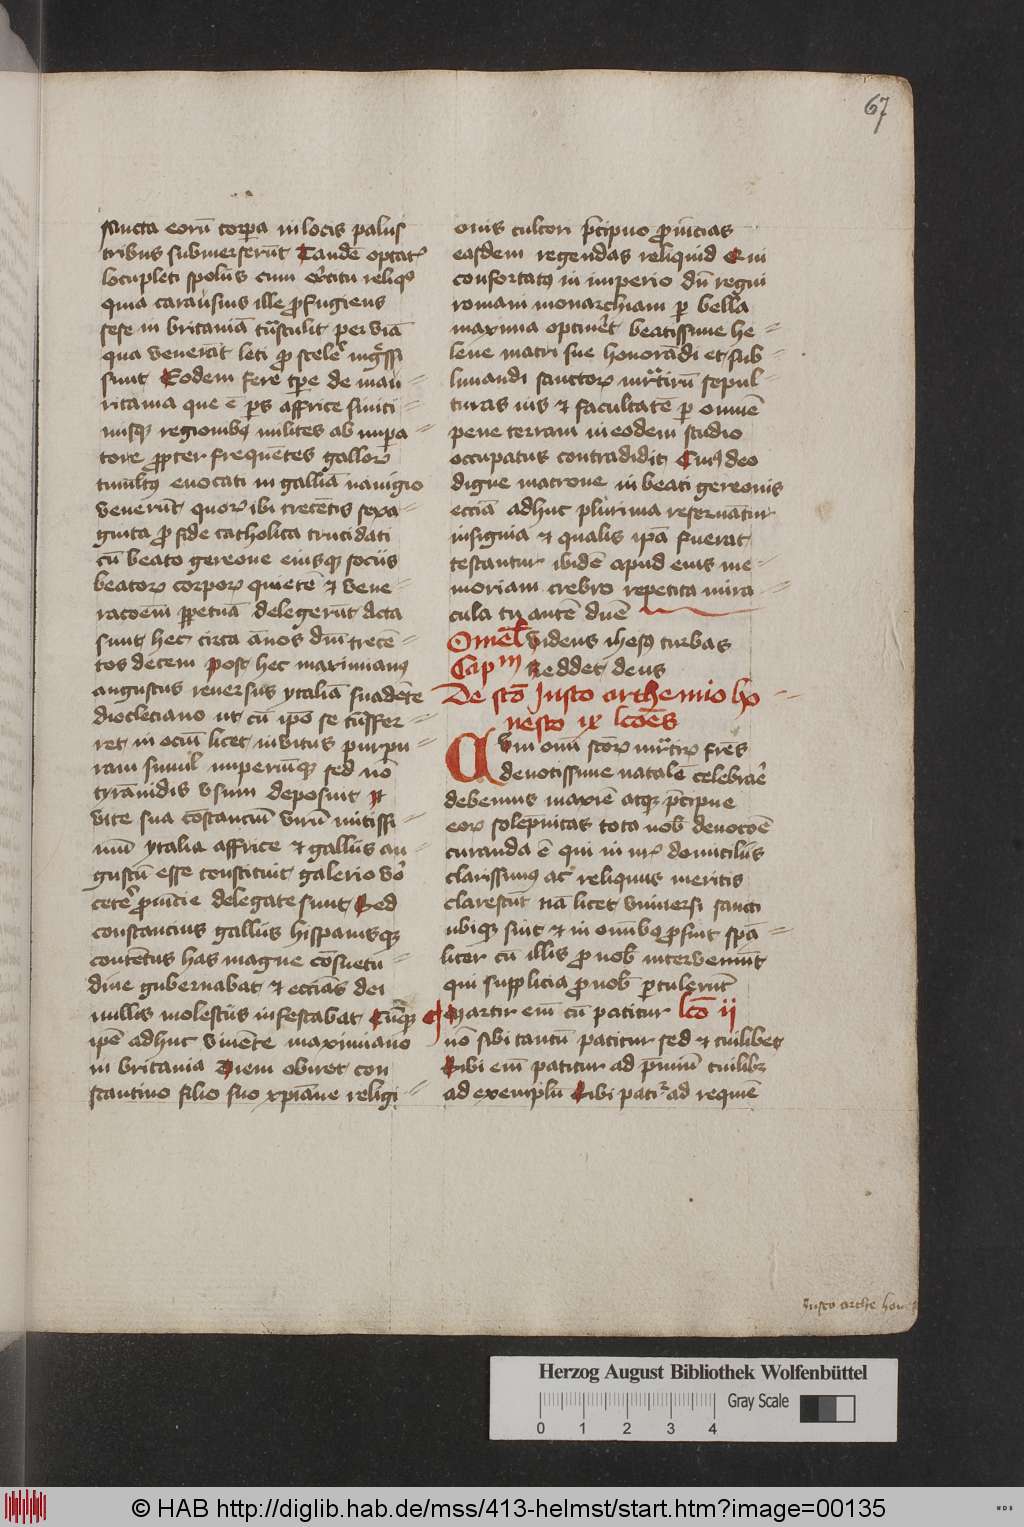 67
sancta eorū corpa in locis palus
tribus submerserūt Tandē optatꝭ
locupleti spoliis cum exʼcitu reliqꝭ
quia carausius ille ꝓfugiens
sese in britaniā tn̄stulit per viā
qua venerāt leti ꝓ scelʼe ingʼssi
sunt Eodem fere tꝑe de mau
ritania que ē ꝑs affrice finiti
misqꝫ regionibꝫ milites ab impa
tore ꝓpter frequētes gallorꝫ
tumltꝫ euocati in galliā nauigio
venerūt quorꝫ ibi trecētis sexa
ginta ꝓ fide catholica trucidati
cū beato gereone eiusqꝫ sociis
beatorꝫ corporꝫ quietē ⁊ vene
racoēm ꝑpetuā delegerūt Acta
sunt hec circa ānos dnī trecē
tos decem Post hec maximianꝫ
augustus reuersus ytaliā suadēte
diocleciano ut cū ipo se tn̄sfer
ret in ociū licet inuitus purpu
ram simul imperiūqꝫ sed nō
tyrānidis vsum deposuit Et
vite sua cōstanciū virū mitissi
mū ytalia affrice ⁊ galliis au
gustū esse constituit galerio vʼo
cetʼe ꝓuīcie delegate sunt Sed
constancius galliis hispaniisqꝫ
contētus has magne cōsuetu
dine gubernabat ⁊ ecciās dei
nullis molestiis infestabat Cūqꝫ
ipē adhuc viuēte maximiano
in britania Diem obiret con
stantino filio suo xpiāne religi
onis cultori pʼcipuo ꝓuicias
easdem regendas reliquid Qui
confortatꝫ in imperio dū regni
romani monarchiam ꝑ bella
maxima optinʼet beatissime he
lene matri sue honorādi et sub
limandi sanctorꝫ mrʼtirū sepul
turas iiis ⁊ facultatē ꝑ omnē
pene terram in eodem studio
occupatus contradidit Cuiꝰ deo
digne matrone in beati gereonis
ecciā adhuc plurima reseruātur
insignia ⁊ qualis ipā fuerat
testantur ibidē apud eius me
moriam crebro repetita mira
cula tu autē dnē
Omelʼ Videns ihesꝫ turbas
Capᵐ Reddet deus
De stō Justo arthemio ho
nesto ix lcōes
Cvm omī stōrꝫ mrʼtirꝫ frēs
deuotissime natalē celebrarʼe
debemus maxīe atqꝫ pʼcipue
eorꝫ solēpnitas tota nobʼ deuocoē
curanda ē qui in nrʼ domiciliis
clarissimꝫ ac reliquus meritis
clarescūt nā licet vniuersi sancti
ubiqꝫ sint ⁊ in omībꝫ ꝓsint spā
liter cū illis ꝓ nobʼ interueniūt
qui supplicia ꝓ nobʼ ꝑtulerūt
Martir em̄ cū patitur lcō ii
nō sibi tantū patitur sed ⁊ cuilibet
Sibi em̄ patitur ad pʼmiū cuilibꝫ
ad exemplū Sibi patiꝭ ad requiē
Justo arthe hones
Herzog August Bibliothek Wolfenbüttel
Gray Scale
0 1 2 3 4
© HAB http://diglib.hab.de/mss/413-helmst/start.htm?image=00135